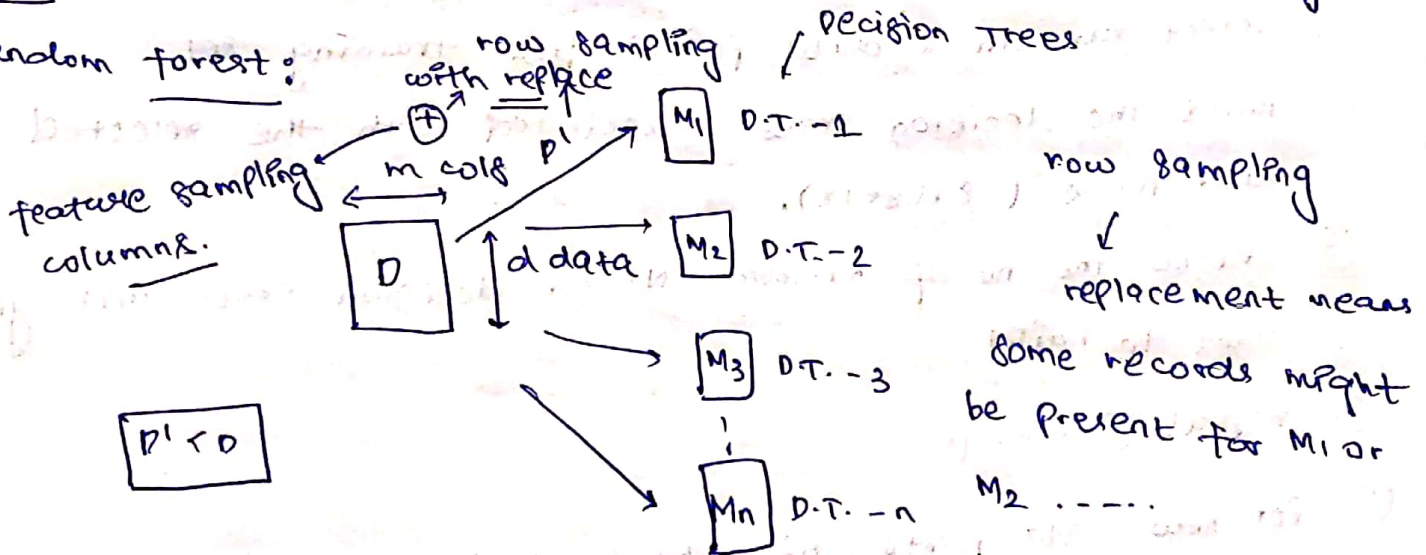 forest:
row sampling
with replace
Decision Trees
feature sampling
columns.
m cols
D'
D
d data
M1 D.T.-1
M2 D.T.-2
M3 D.T.-3
Mn D.T.-n
D' < D
row sampling
replacement means
some records might
be present for M1 or
M2 .....